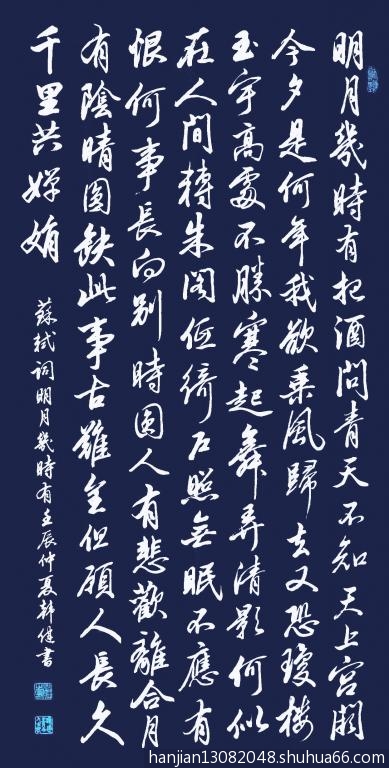 明月幾時有把酒問青天不知天上宮闕
今夕是何年我欲乘風歸去又恐瓊樓
玉宇高處不勝寒起舞弄清影何似
在人間轉朱閣低綺户照無眠不應有
恨何事長向别時圓人有悲歡離合月
有陰晴圓缺此事古難全但願人長久
千里共嬋娟
蘇軾詞明月幾時有壬辰仲夏韓健書
hanjian13082048.shuhua66.com